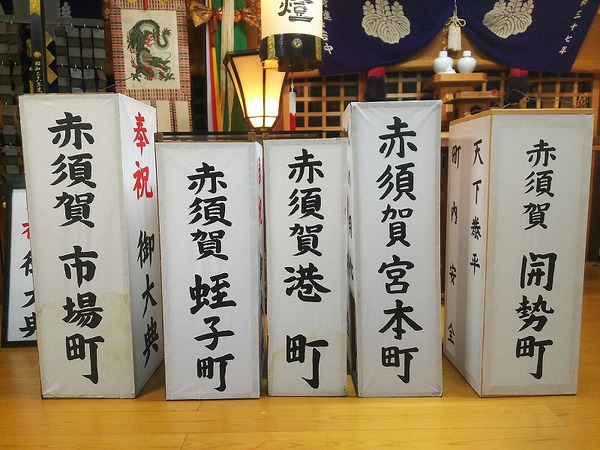 赤須賀 市場町
奉祝 御大典
赤須賀 蛭子町
赤須賀 港町
赤須賀 宮本町
天下泰平
町内安全
赤須賀 開勢町
御大典
燈
三十七年